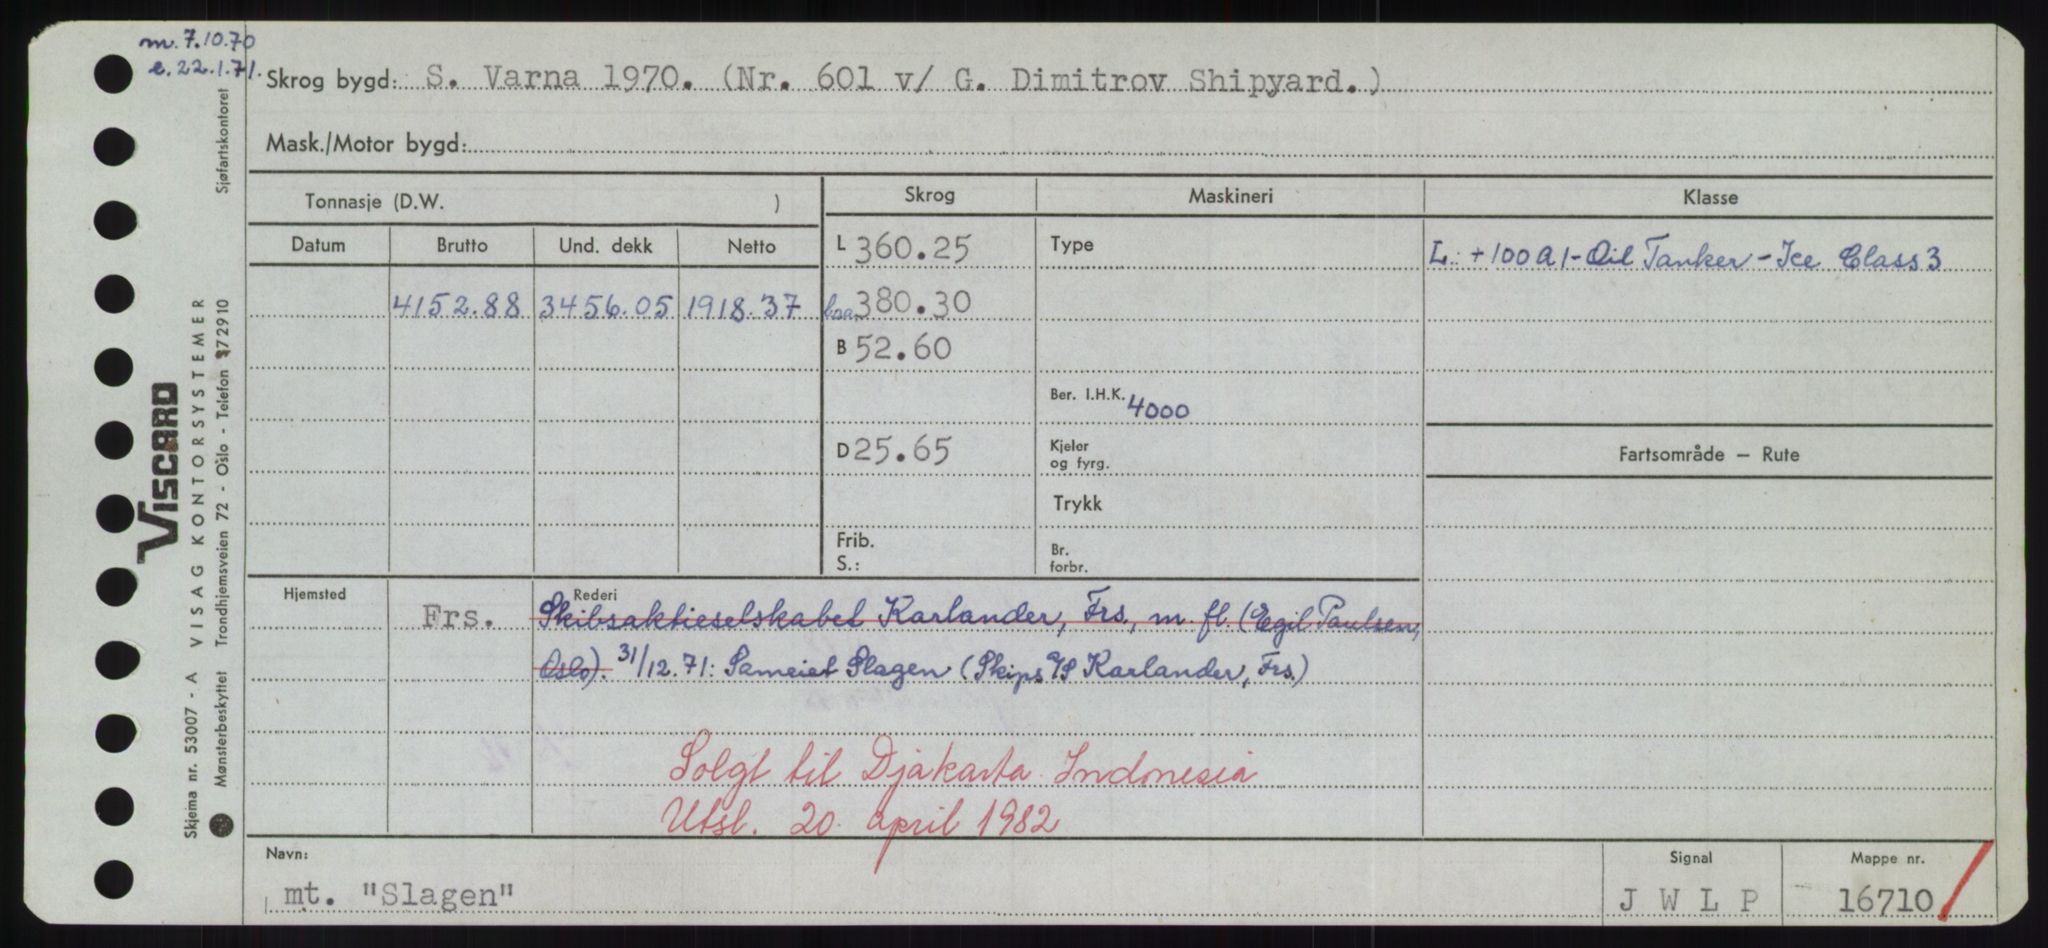 m. 7.10.70
e. 22.1.71.
Skrog bygd: S. Varna 1970. (Nr. 601 v/ G. Dimitrov Shipyard.)
Mask./Motor bygd:
Tonnasje (D.W. )
Skrog
Maskineri
Klasse
Datum Brutto Und. dekk Netto
L 360.25
Type
L: +100A1-Oil Tanker-Ice Class 3
4152.88 3456.05 1918.37
380.30
B 52.60
Ber. I.H.K. 4000
D 25.65
Kjeler
og fyrg.
Fartsområde — Rute
Trykk
Frib.
S.:
Br.
forbr.
Hjemsted
Rederi
Frs. Skibsaktieselskabet Karlander, Frs., m. fl. (Egil Paulsen,
Oslo). 31/12.71: Sameiet Slagen (Skips A/S Karlander, Frs.)
Solgt til Djakarta Indonesia
Utsl. 20. april 1982
Navn:
mt. "Slagen"
Signal
J W L P
Mappe nr.
16710
VISCARD
Skjema nr. 53007 - A VISAG KONTORSYSTEMER
Mønsterbeskyttet Trondhjemsveien 72 - Oslo - Telefon 372910 Sjøfartskontoret